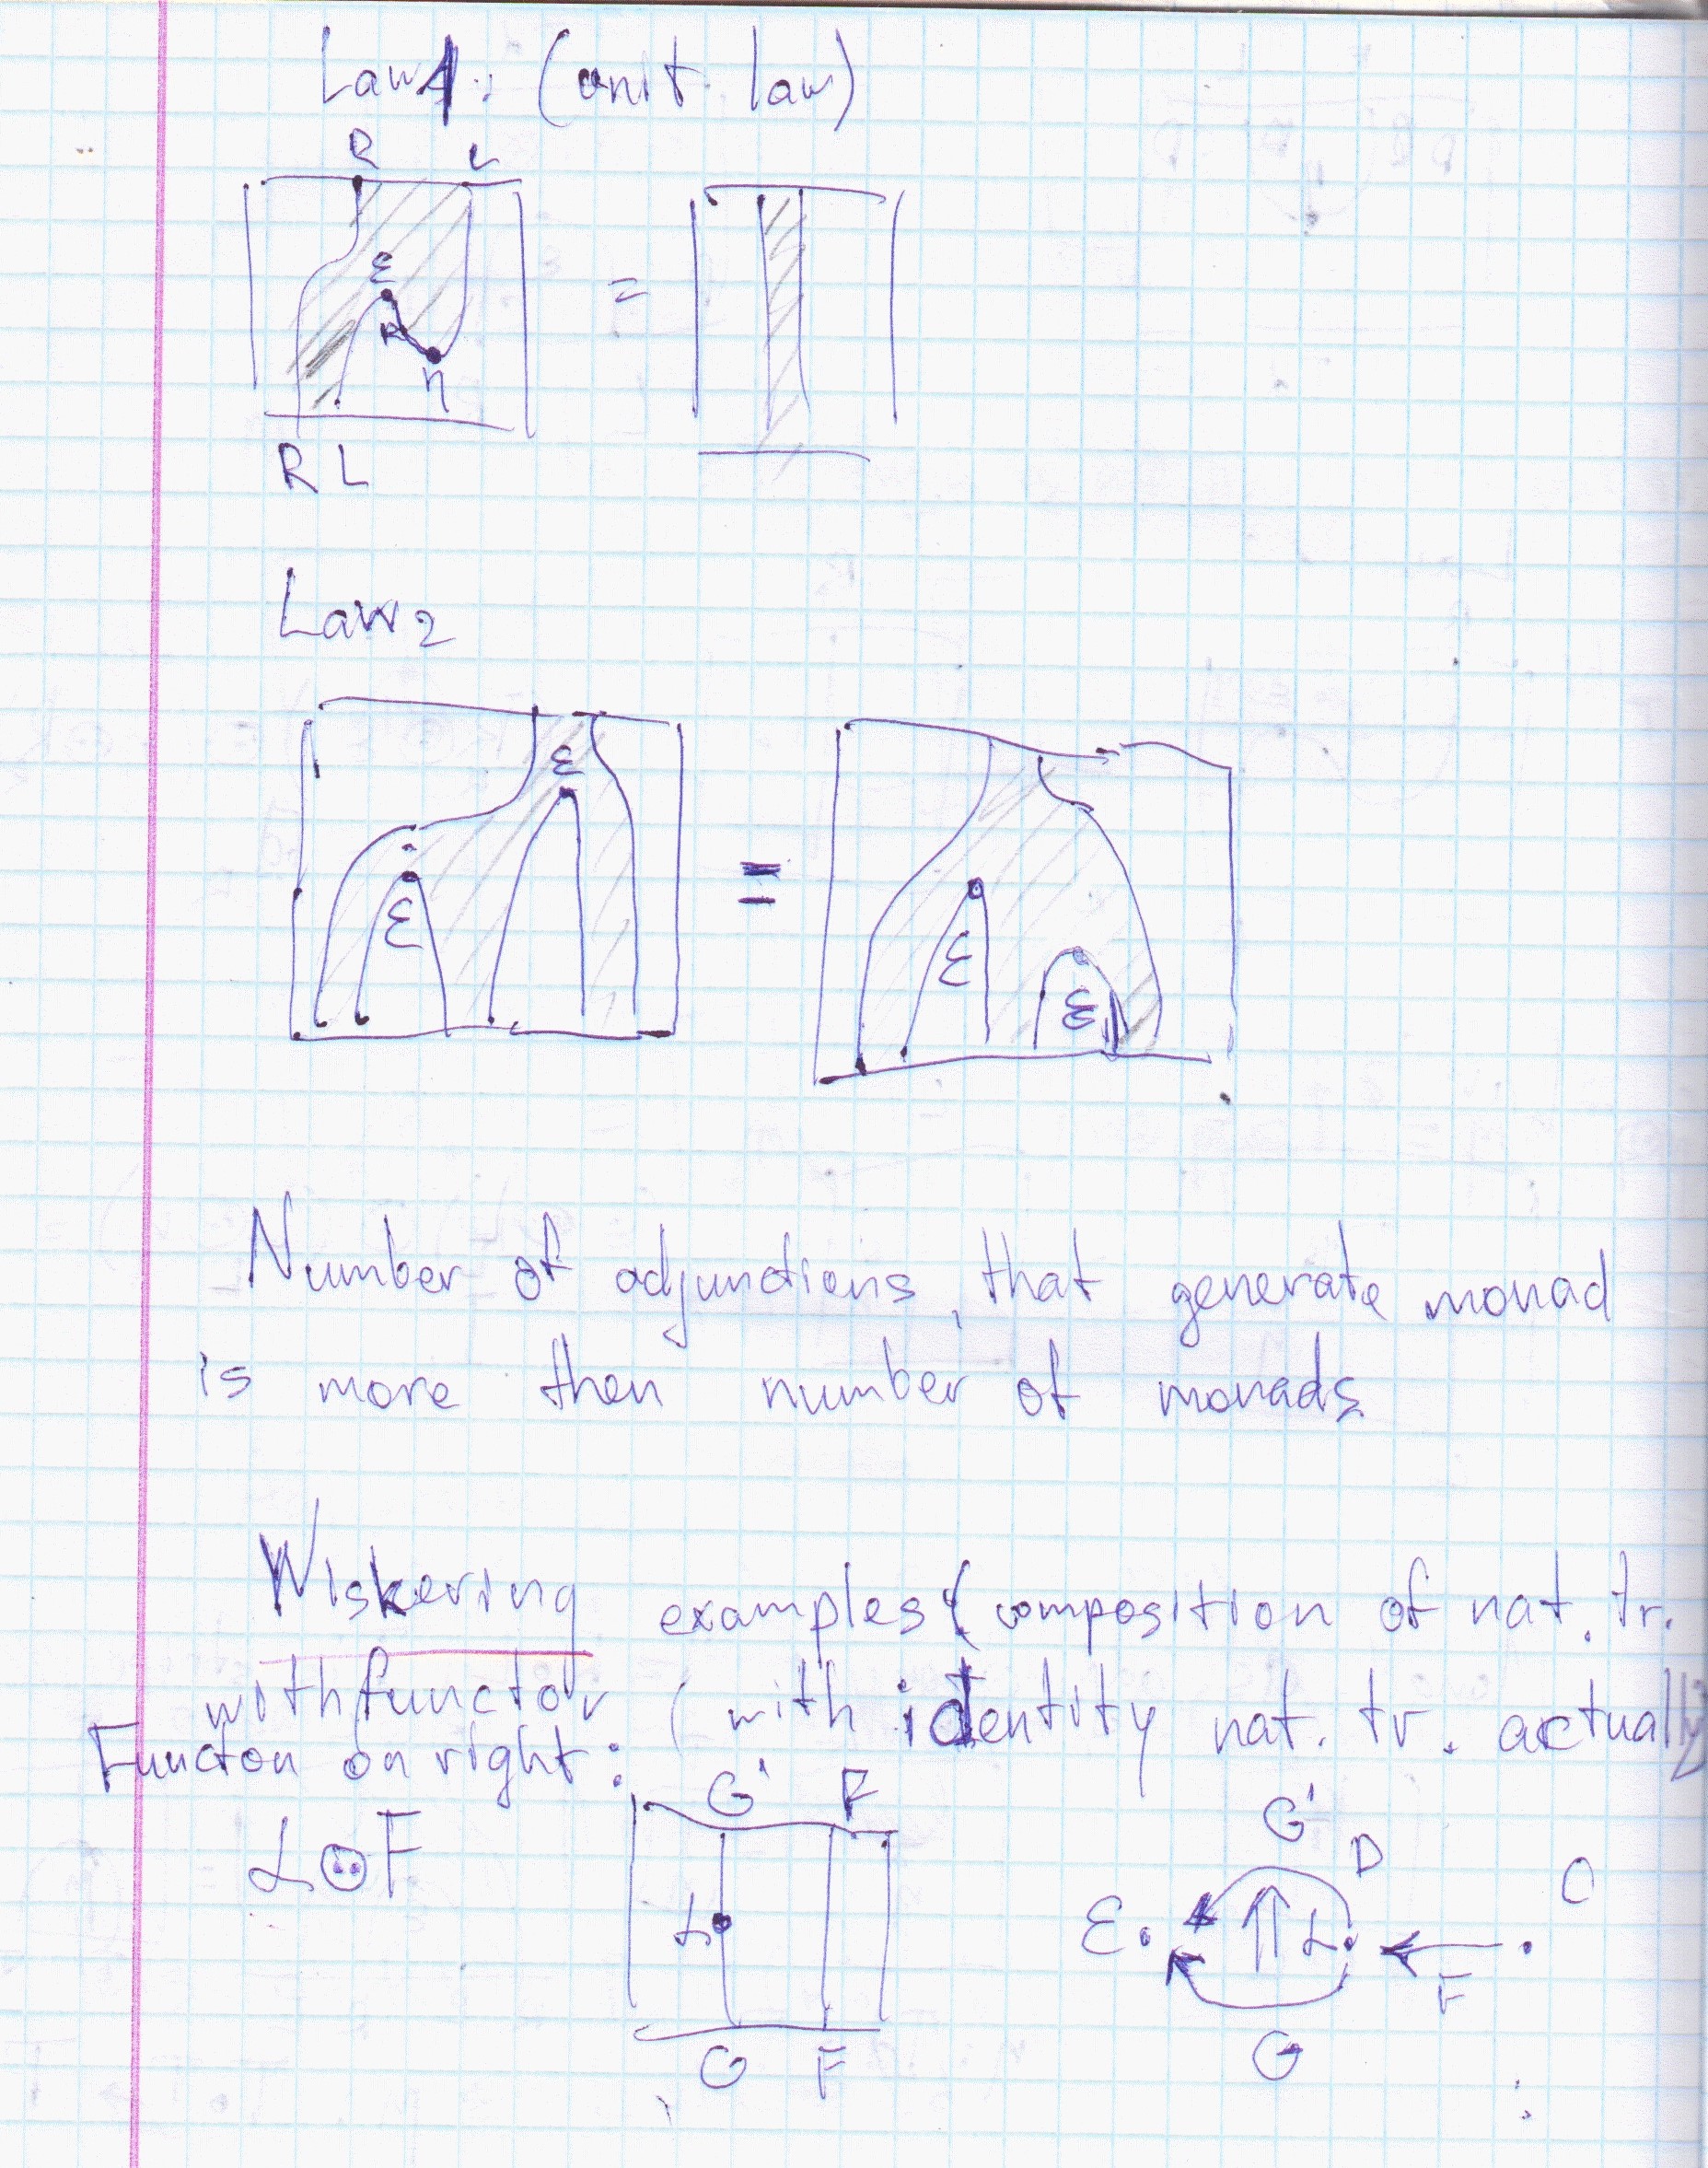 Law 1: (unit law)
R L
ε
R
η
=
R L
Law 2
ε
ε
=
ε
ε
Number of adjunctions, that generate monad
is more then number of monads
Wiskering examples (composition of nat. tr.
with functor (with identity nat. tr. actually
Functor on right:
G' F
α ⊙ F
α
G F
G'
D
C
ε
α
F
G